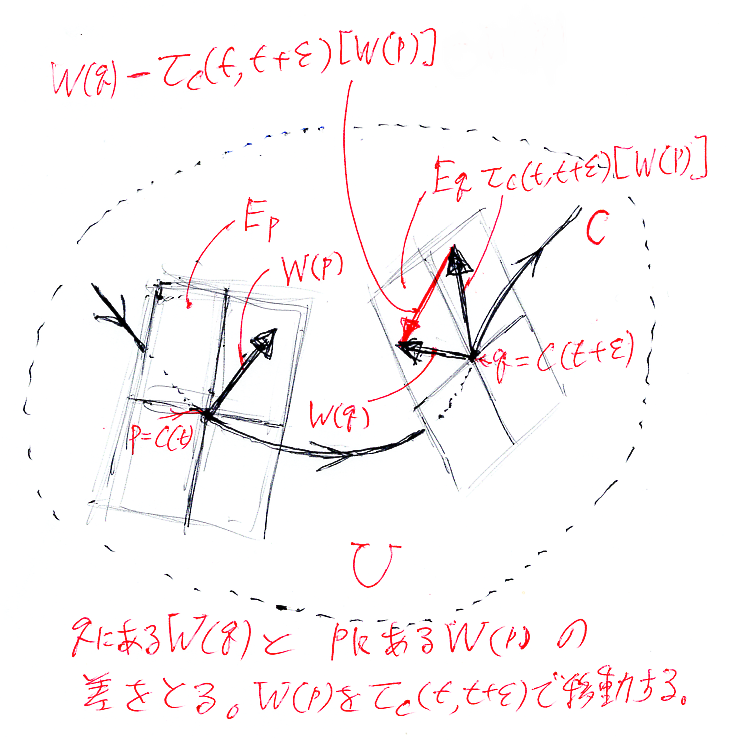 W(q)−τc(t,t+ε)[W(p)]
Eq τc(t,t+ε)[W(p)]
Ep
C
W(p)
q=C(t+ε)
W(q)
p=C(t)
U
qにあるW(q)と pにあるW(p)の
差をとる。W(p)をτc(t,t+ε)で移動する。